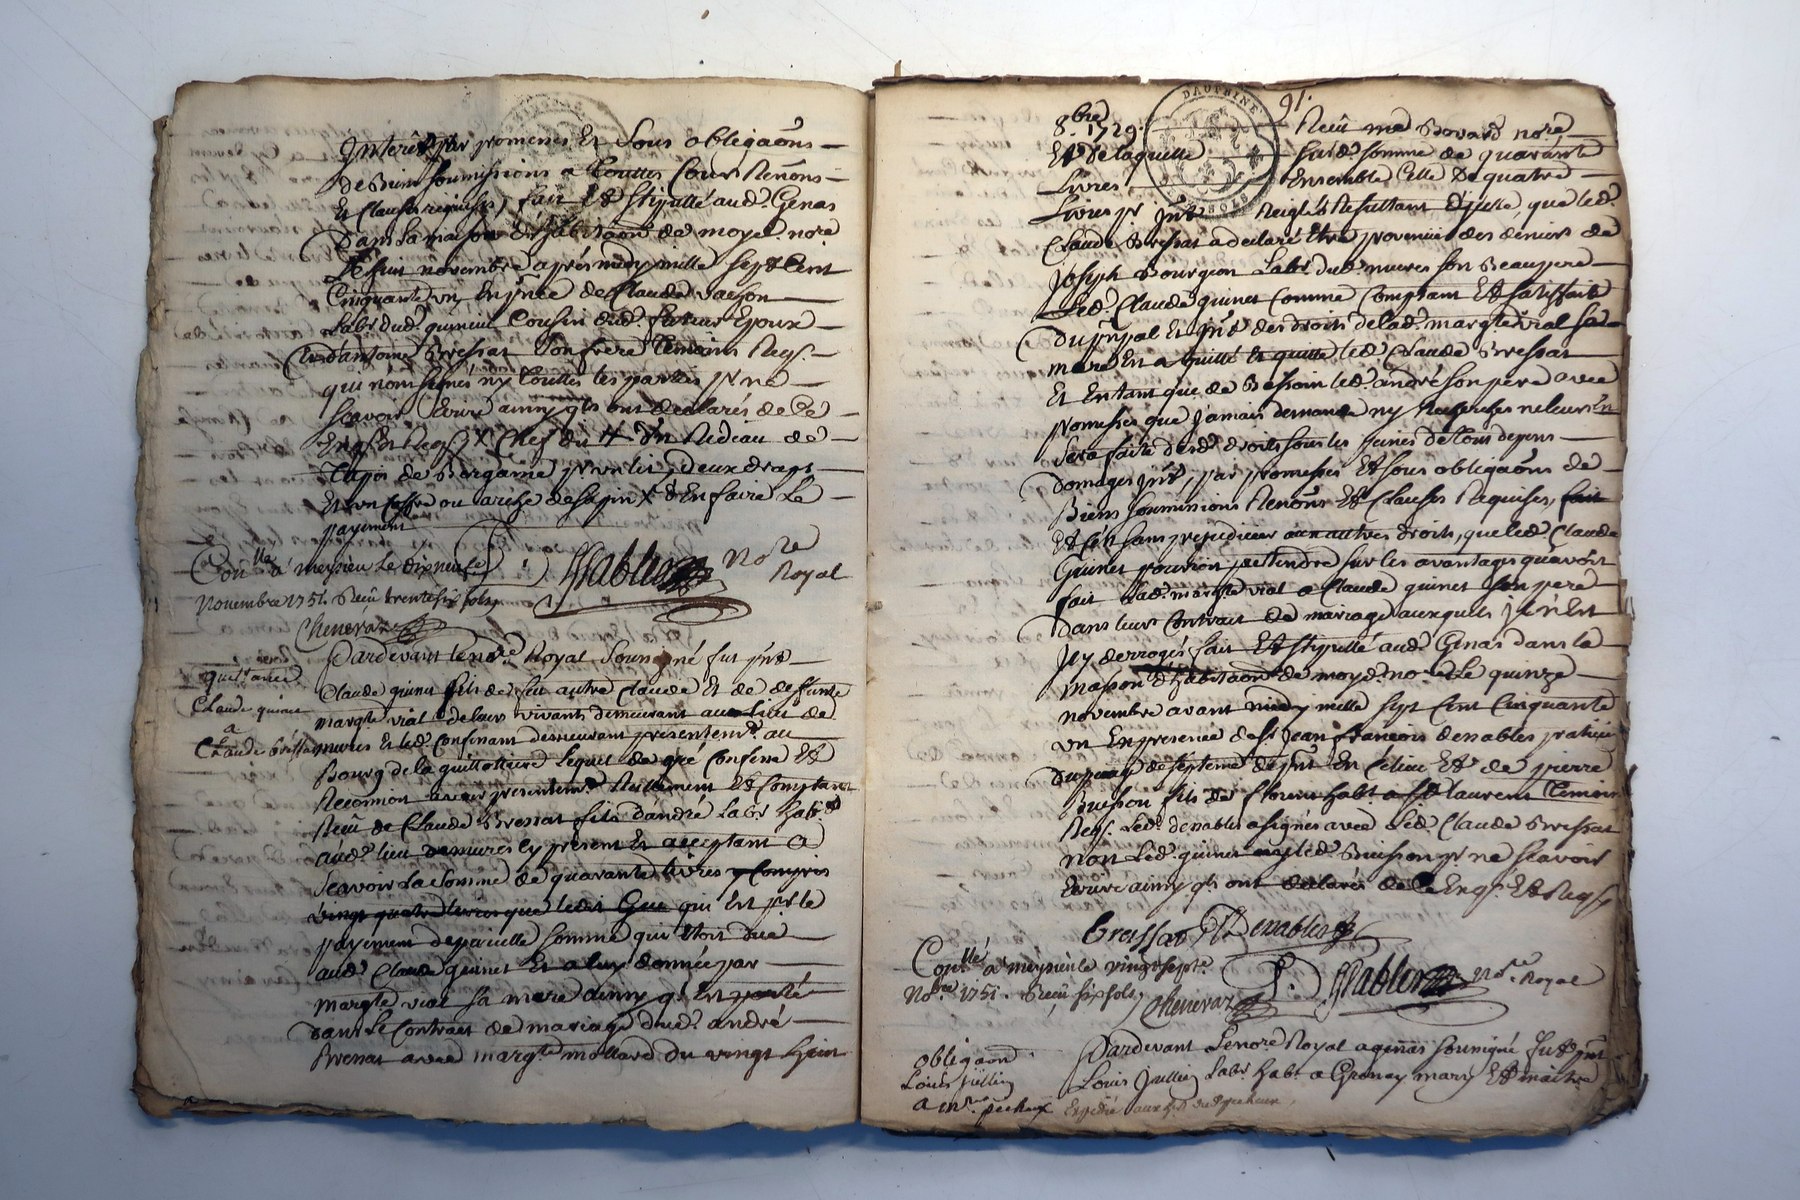 Interêts par promesses Et Sous obligaõns
de Biens soumissions a touttes Cours Renõns
Et Clauses requises, fait Et stipullé aud. Genas
Dans la maison d'habitaõn de moyd. nore
Le huit novembre après midy mille sept Cent
Cinquante un En pnce de Claude vachon
Labr dud. Cousin dud. futeur Epoux
Et d'antoine Bressat son frere temoins Reqs.
qui n'ont signés ny touttes les parties pr ne
scavoir Ecrire ainsy qls ont declarés de Ce
Enqs Et Reqs X Chef du lit Un Rideau de
Tapis de Bergame pr un lit, deux draps
Et un Coffre ou arche de sapin X Et En faire Le
payement
Conlle a meysieu Le dixneuf
novembre 1751. Reçu trente six sols
Chenevaz
Nore
Royal
Pardevant Le nore Royal Soussigné fut pnt
quittance
Claude guinet
a
Claude bressat
Claude guinet fils de feu autre Claude Et de deffunte
margte vial de leur vivants demeurant au lieu de
mures Et led. Confinant demeurant presentemt au
Bourg de la guillottiere Lequel de gré Confesse Et
Reconnoit avoir presentemt Reellement Et Comptant
Reçu de Claude Bressat fils d'andré Labr habt
aud. lieu de mures cy present Et acceptant a
Scavoir La somme de quarante livres y Compris
vingt quatre livres que ledit Gui qui Est pr le
payement de pareille somme qui Etoit due
aud. Claude guinet Et a luy donnée par
margte vial sa mere ainsy ql Est porté
dans le Contrait de mariage dud. andré
Bressat avec margte mollard du vingt huit
91.
DAUPHINE
8.bre 1729. Reçu me Bovard nore
Et de laquelle susd. somme de quarante
Livres Ensemble Celle de quatre
Livres pr Int Reiglés Resultant d'ycelle, que led.
Claude Bressat a declaré Etre provenue des deniers de
Joseph Bourgeon Labr dud. mures son Beaupere
Led. Claude guinet Comme Comptant Et satisfait
Du pnpal Et Int des droits de lad. margte vial sa
mere En a quitté Et quitte led. Claude Bressat
Et Entant que de Besoin led. andré son pere avec
promesses que Jamais demande ny Recherches ne leur En
Sera faite desd. droits sous les peines de tous depens
domages Int, par promesses Et sous obligaõns de
Biens soumissions Renõns Et Clauses Requises, fait
Et Ce sans prejudicier aux autres droits, que led. Claude
Guinet pourroit pretendre sur les avantages qu'avoit
fait Lad. margte vial a Claude guinet son pere
dans leur Contrait de mariage auxquels Il n'Est
Icy derrogés fait Et stipullé aud. Genas dans la
maison d'habitaõn de moyd. nore Le quinze
novembre avant midy mille sept Cent Cinquante
un En presence de sr Jean francois denables pratiq
du de septeme de pnt En Ce lieu Et de pierre
Buisson fils de habt a st laurent temoins
Reqs. Led. denables a signés avec Led. Claude Bressat
non Led. guinet ny led. Buisson pr ne scavoir
Ecrire ainsy qls ont declarés de Ce Enqs Et Reqs
bressat Denables
Conllé a meysieu le vingt sept
Nobre 1751. Reçu six sols
Chenevaz
Nore Royal
Pardevant Le nore Royal a genas soussigné fut pnt
obligaõn
Louis Jullien
a mr. pecheux
Louis Jullien Labr habt a Grenay mary Et maitre
Expedié aux